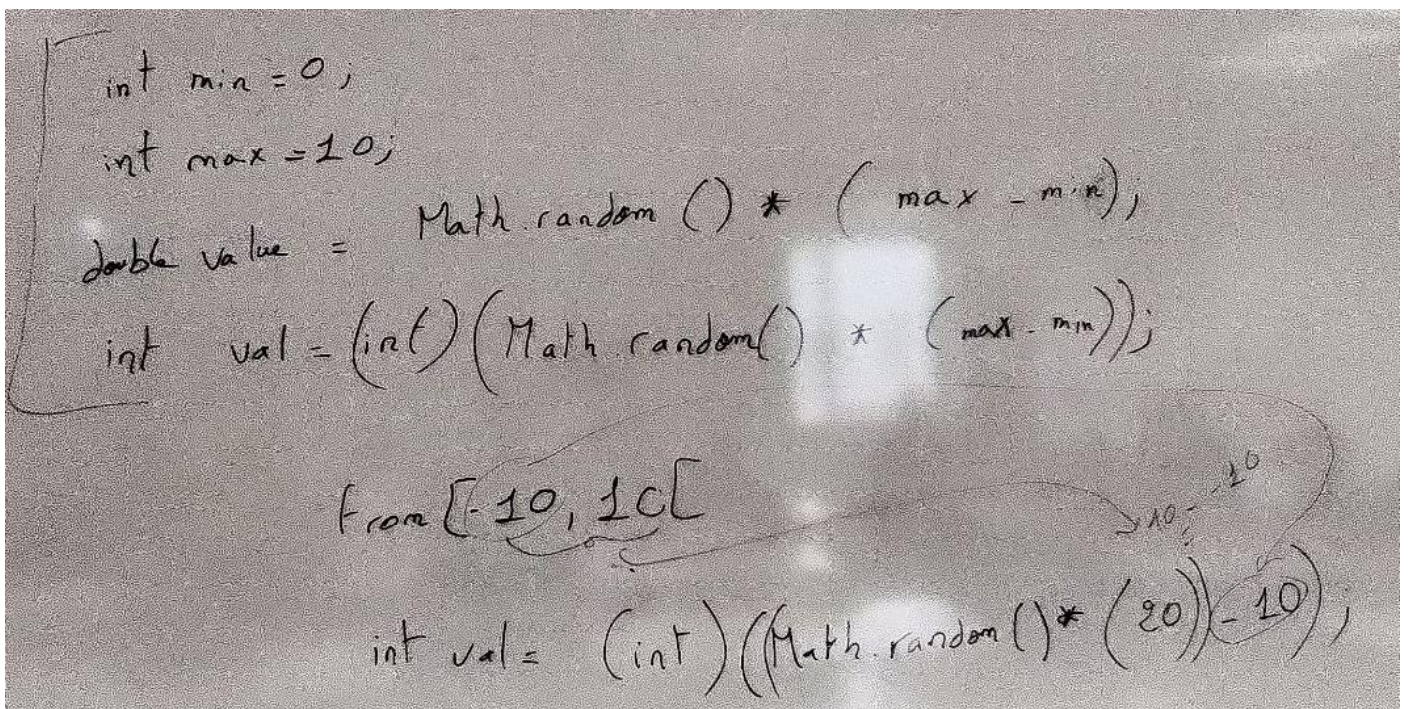 int min = 0;
int max = 10;
double value = Math.random() * (max - min);
int val = (int)(Math.random() * (max - min));
From [-10, 10[
10 - -10
int val = (int)((Math.random()* (20)) - 10);